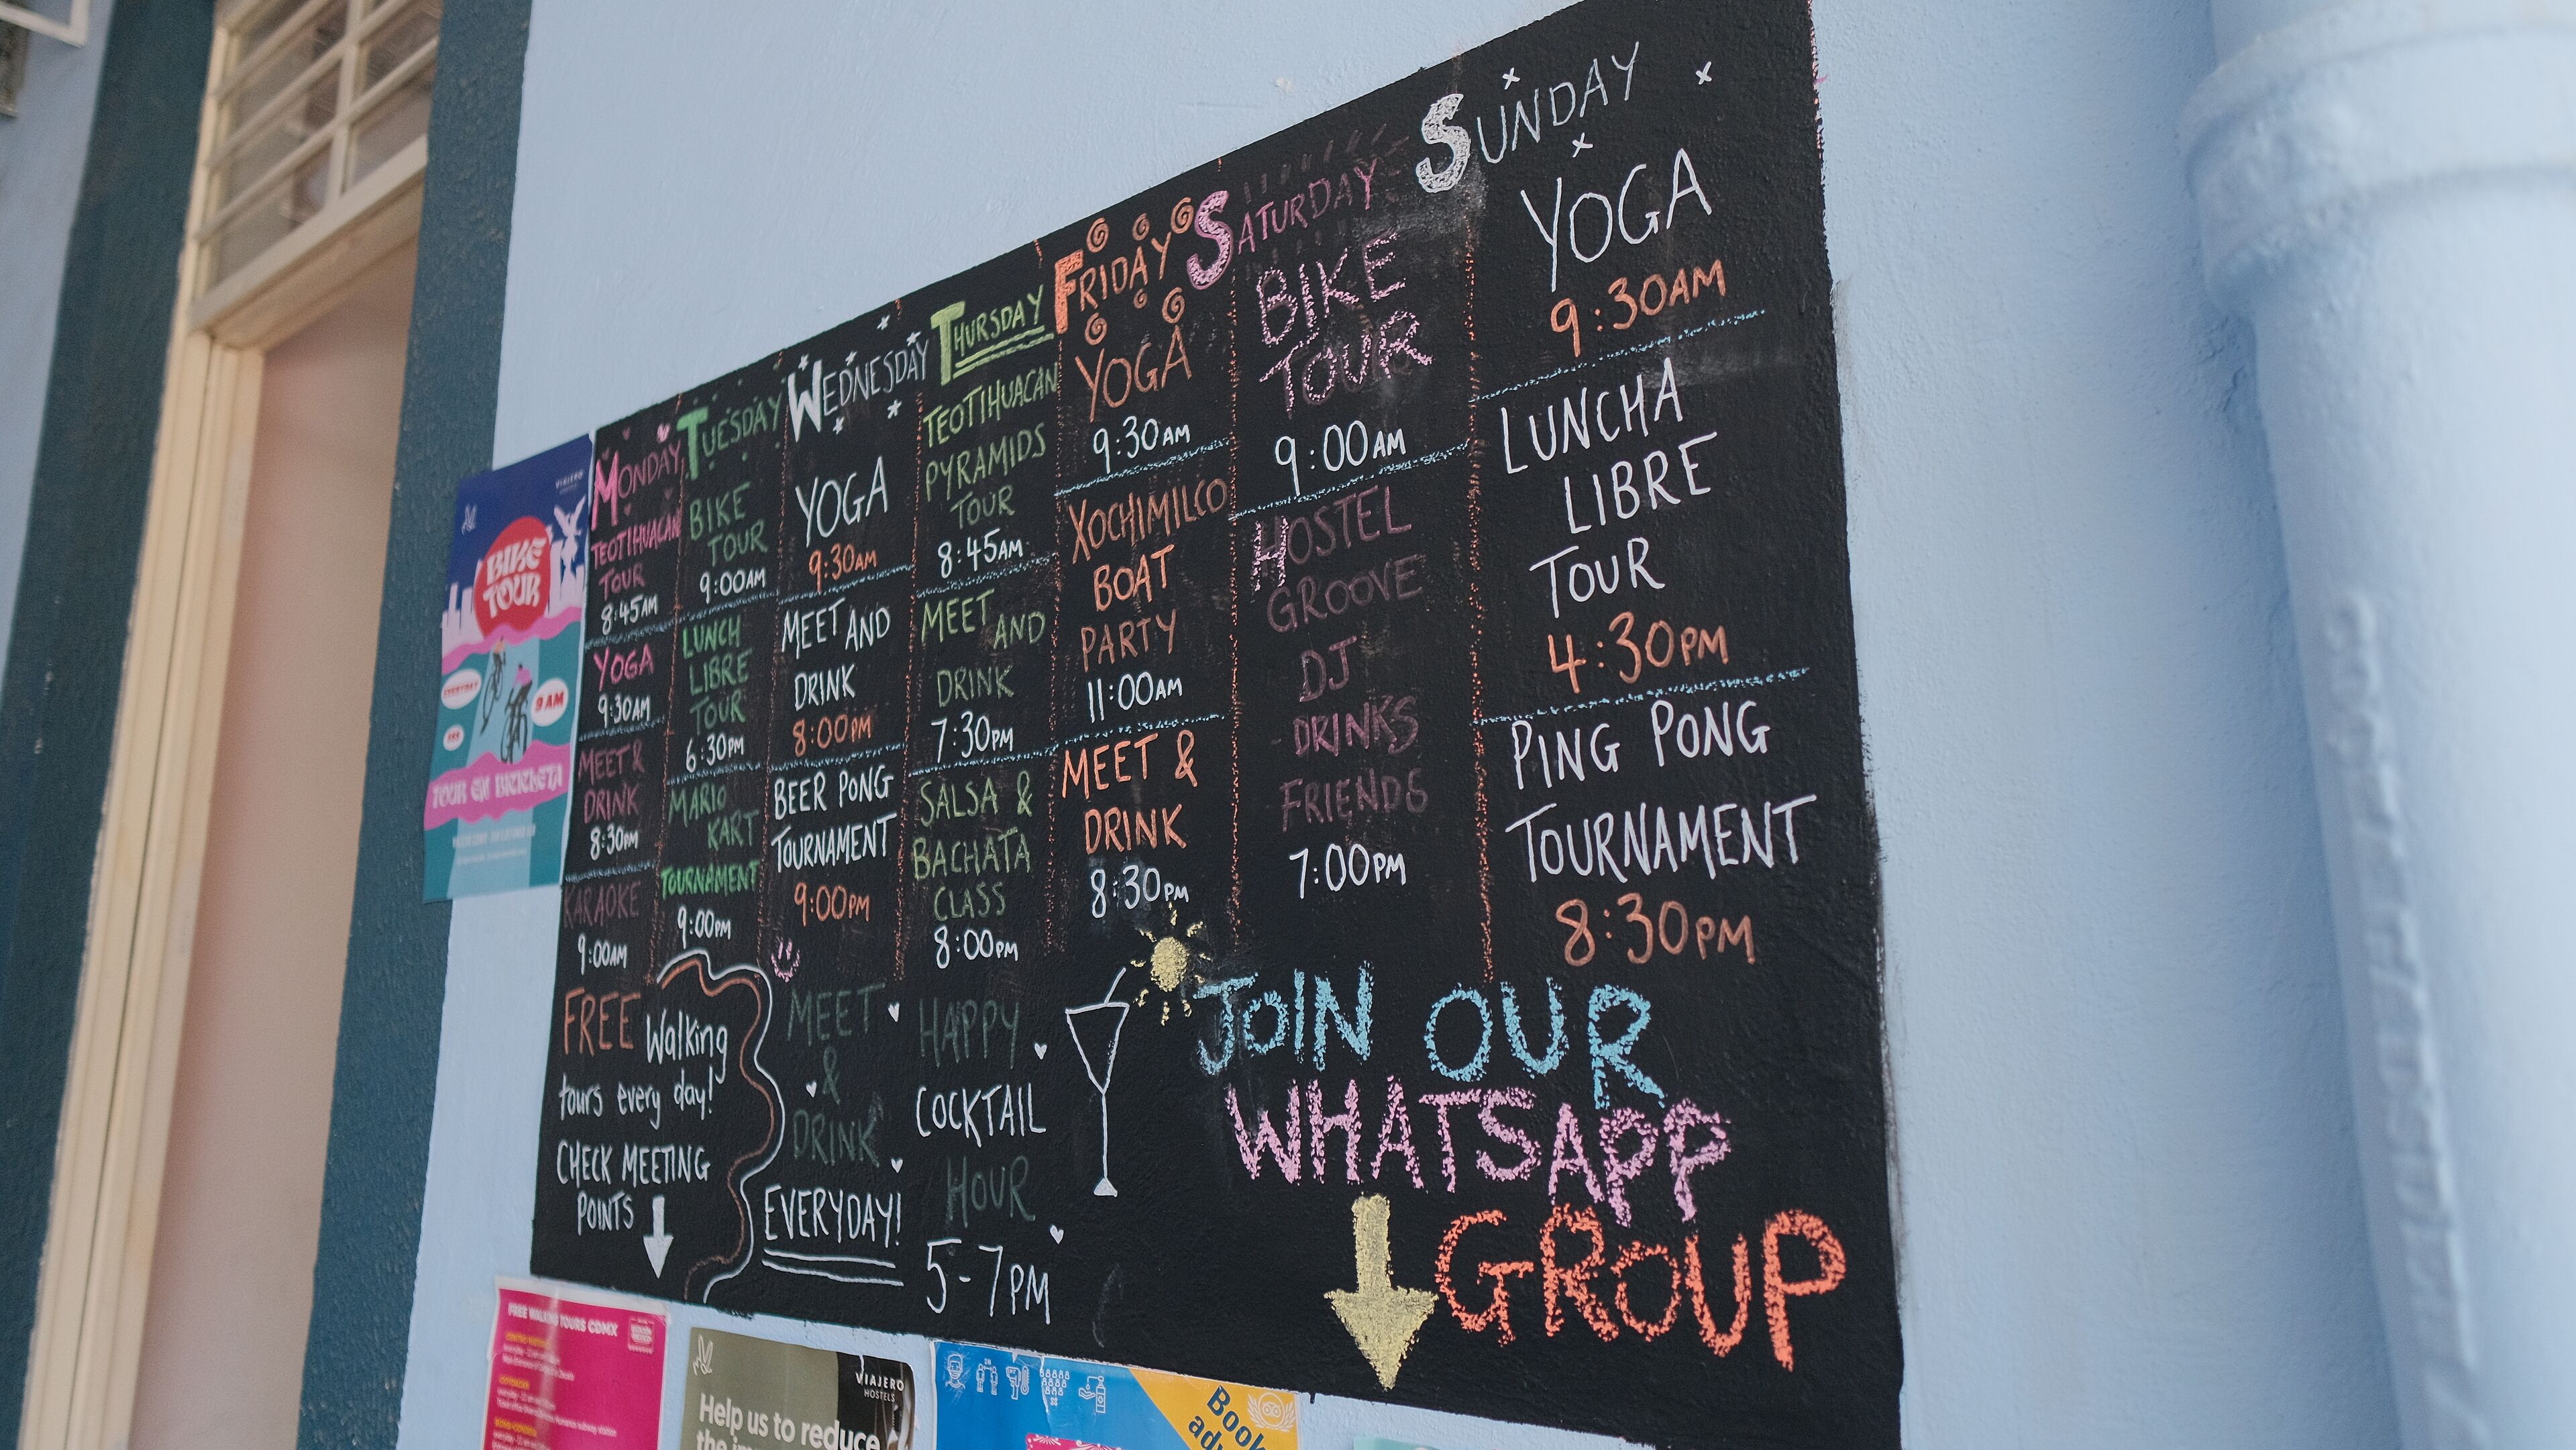 MONDAY
TEOTIHUACAN
TOUR
8:45AM
YOGA
9:30AM
MEET &
DRINK
8:30PM
KARAOKE
9:00AM
TUESDAY
BIKE
TOUR
9:00AM
LUNCH
LIBRE
TOUR
6:30PM
MARIO
KART
TOURNAMENT
9:00PM
WEDNESDAY
YOGA
9:30AM
MEET AND
DRINK
8:00PM
BEER PONG
TOURNAMENT
9:00PM
THURSDAY
TEOTIHUACAN
PYRAMIDS
TOUR
8:45AM
MEET AND
DRINK
7:30PM
SALSA &
BACHATA
CLASS
8:00PM
FRIDAY
YOGA
9:30AM
XOCHIMILCO
BOAT
PARTY
11:00AM
MEET &
DRINK
8:30PM
SATURDAY
BIKE
TOUR
9:00AM
HOSTEL
GROOVE
DJ
DRINKS
FRIENDS
7:00PM
SUNDAY
YOGA
9:30AM
LUNCHA
LIBRE
TOUR
4:30PM
PING PONG
TOURNAMENT
8:30PM
FREE Walking
tours every day!
CHECK MEETING
POINTS
MEET
&
DRINK
EVERYDAY!
HAPPY
COCKTAIL
HOUR
5-7PM
JOIN OUR
WHATSAPP
GROUP
VIAJERO
BIKE
TOUR
EVERYDAY
9 AM
TOUR EN BICICLETA
FREE WALKING TOURS CDMX
VIAJERO
HOSTELS
Help us to reduce
Book